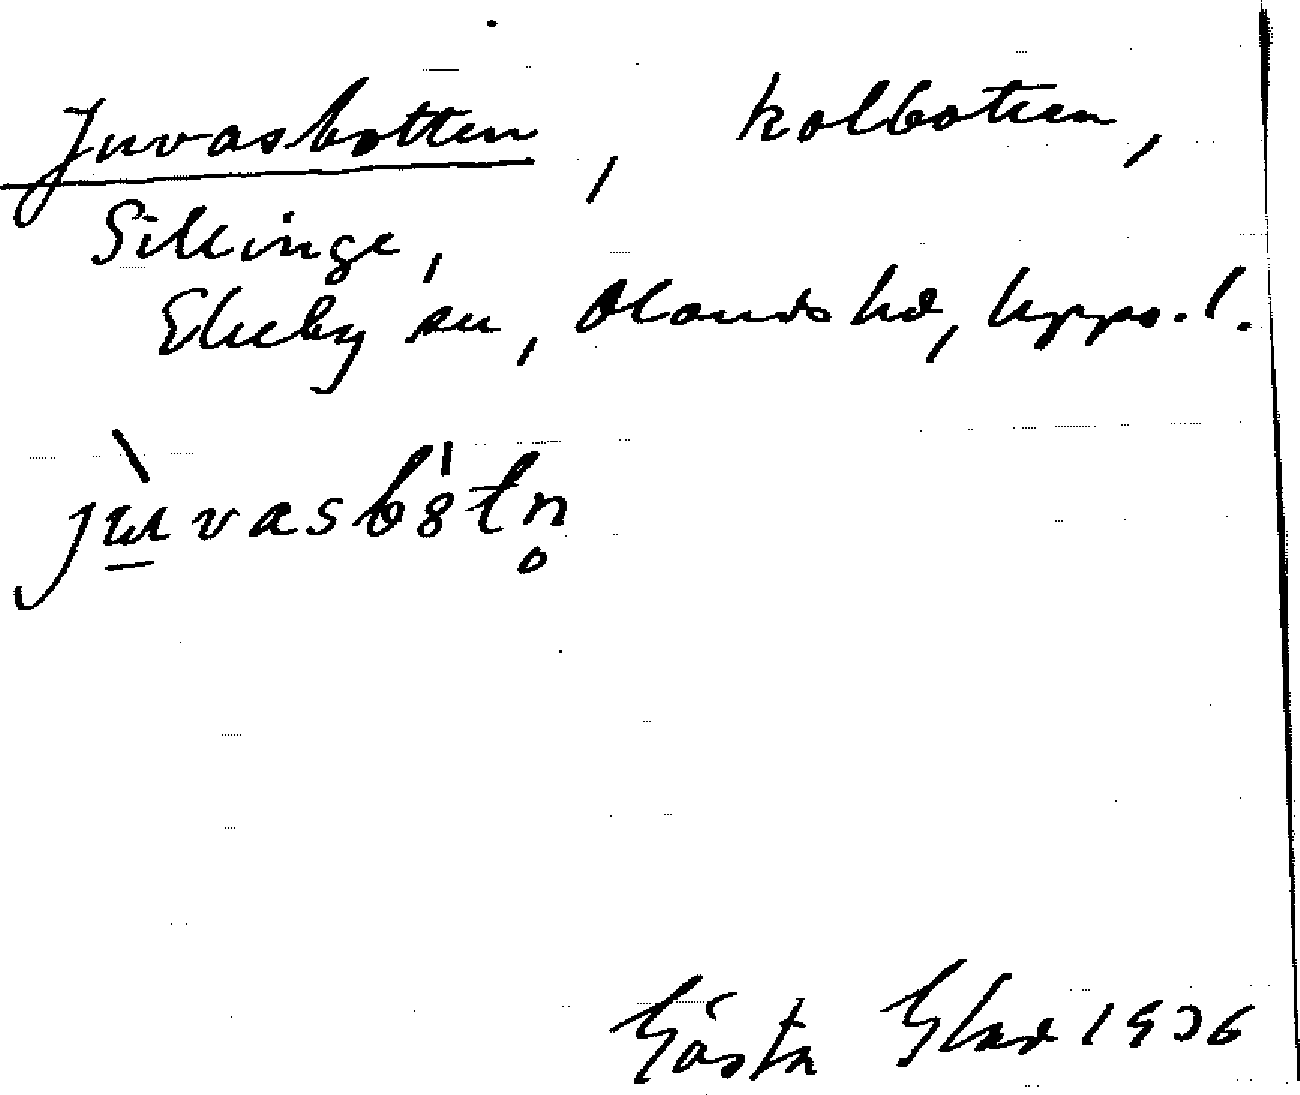 Juvasbotten, kolbotten,
Sillinge,
Ekeby sn, Olands hd, Upps. l.
jùvasb8́tn̥
Gösta Glad 1936